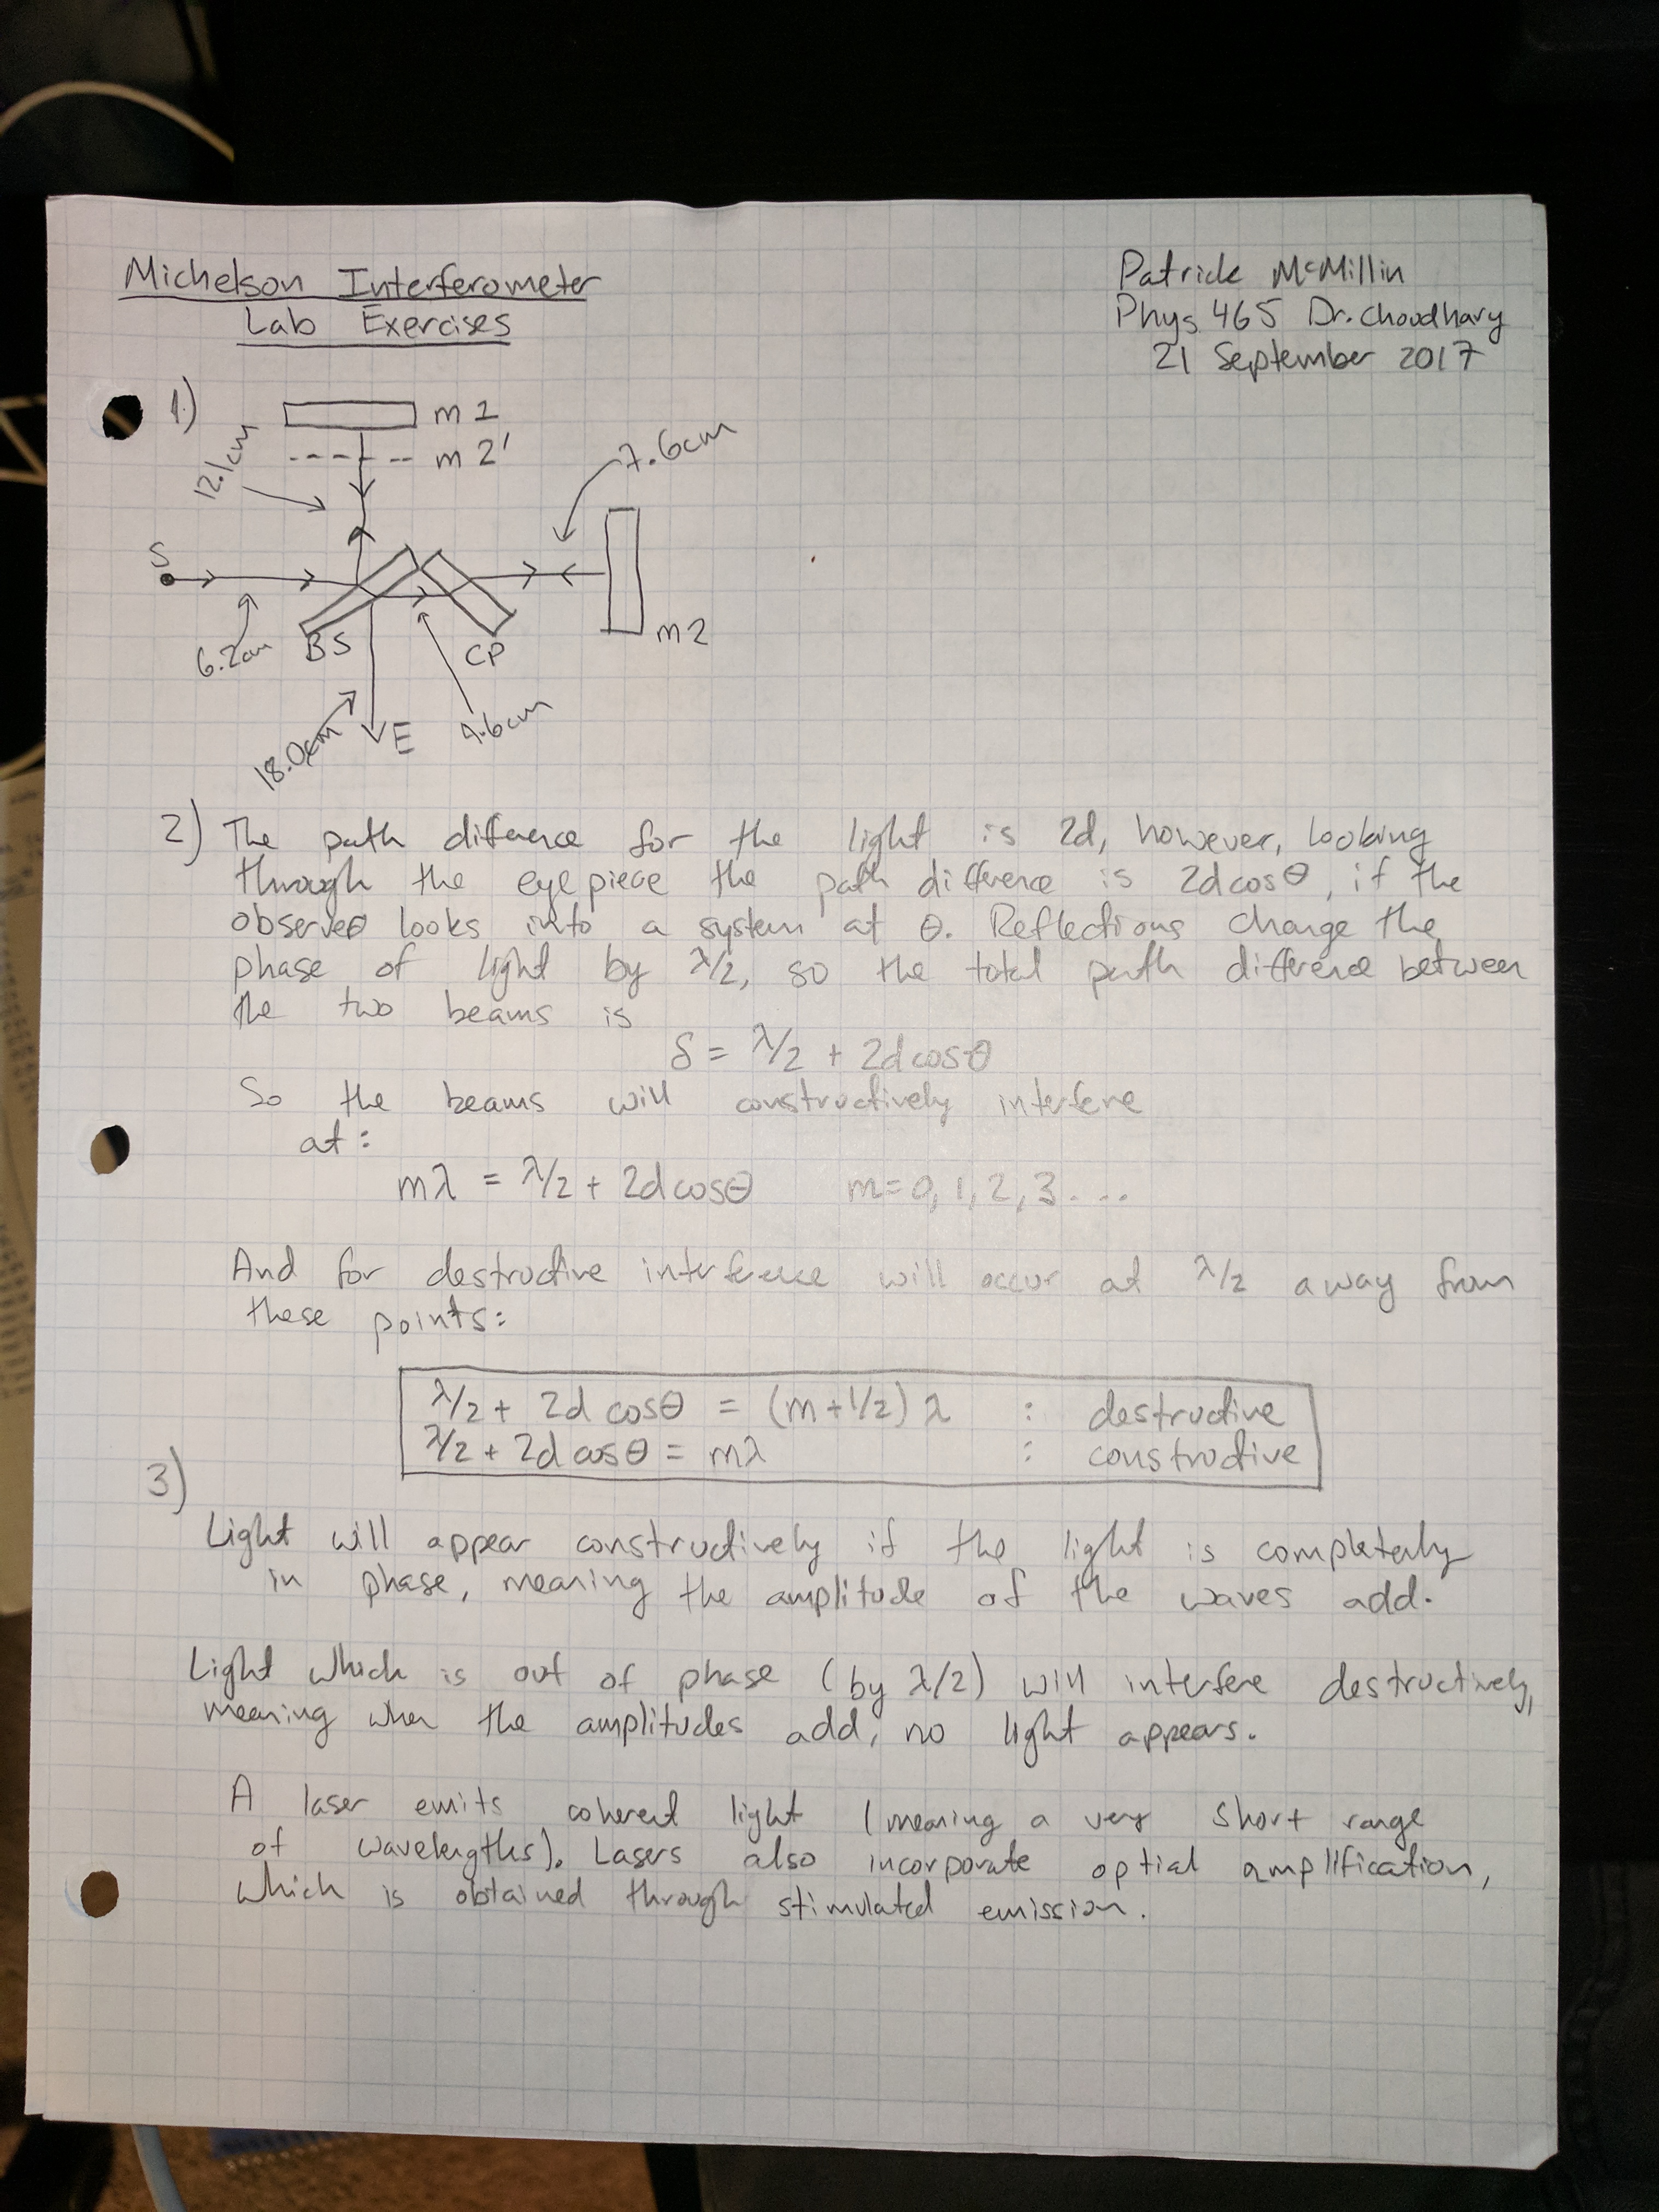 Michelson Interferometer
Lab Exercises
Patrick McMillin
Phys 465 Dr. Choudhary
21 September 2017
1.)
m 1
m 2'
12.1cm
7.6cm
S
6.2cm
BS
CP
m2
18.0cm
E
4.6cm
2) The path difference for the light is 2d, however, looking
through the eyepiece the path difference is 2dcosθ, if the
observer looks into a system at θ. Reflections change the
phase of light by λ/2, so the total path difference between
the two beams is
δ = λ/2 + 2dcosθ
So the beams will constructively interfere
at:
mλ = λ/2 + 2dcosθ m=0,1,2,3...
And for destructive interference will occur at λ/2 away from
these points:
λ/2 + 2d cosθ = (m+1/2)λ : destructive
λ/2 + 2d cosθ = mλ : constructive
3)
Light will appear constructively if the light is completely
in phase, meaning the amplitude of the waves add.
Light which is out of phase (by λ/2) will interfere destructively,
meaning when the amplitudes add, no light appears.
A laser emits coherent light (meaning a very short range
of wavelengths). Lasers also incorporate optial amplification,
which is obtained through stimulated emission.